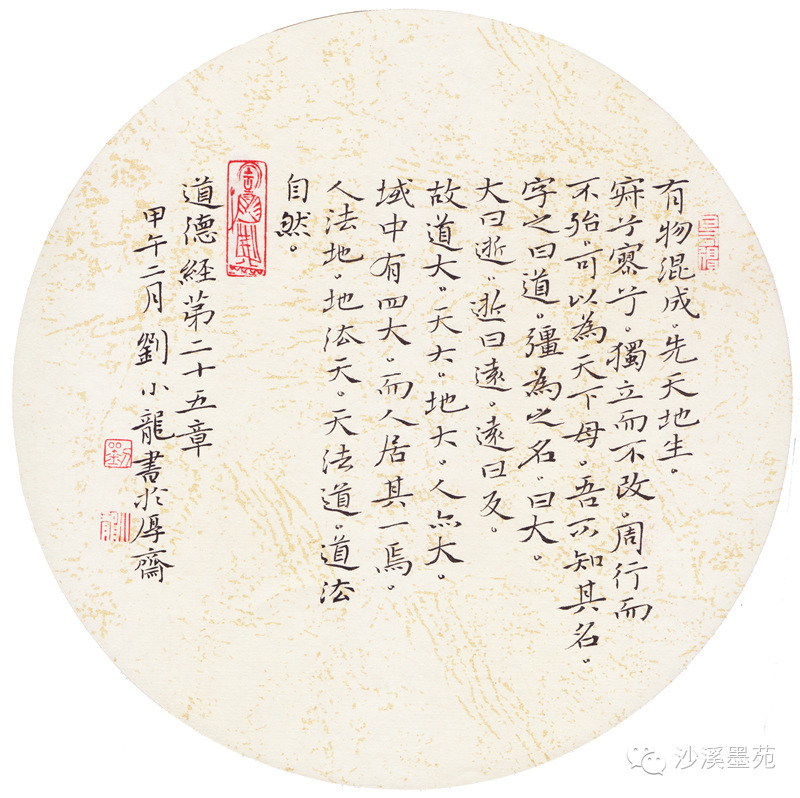 有物混成。先天地生。
寂兮寥兮。獨立而不改。周行而
不殆。可以為天下母。吾不知其名。
字之曰道。彊為之名。曰大。
大曰逝。逝曰遠。遠曰反。
故道大。天大。地大。人亦大。
域中有四大。而人居其一焉。
人法地。地法天。天法道。道法
自然。
道德経第二十五章
甲午二月劉小龍書於厚齋
劉
沙溪墨苑